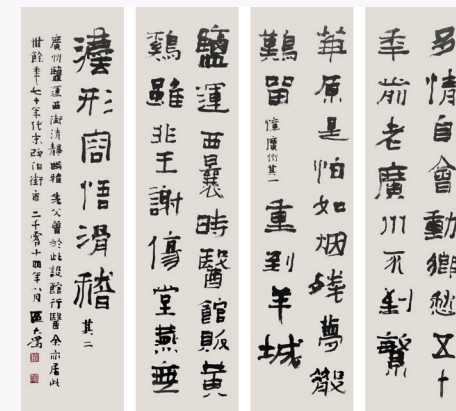 多情自會動鄉愁五十
年前老廣州不到繁
華原是怕如烟殘夢散
難留 憶廣州其一 重到羊城
鹽運西曩時醫館販黃
鷄雖非王謝傷堂燕
形容悟滑稽 其二
廣州鹽運西街清靜幽雅先父曾於此設館行醫余亦居此
卅餘年七十年代末改旧街市 二千零十四年八月 區大為